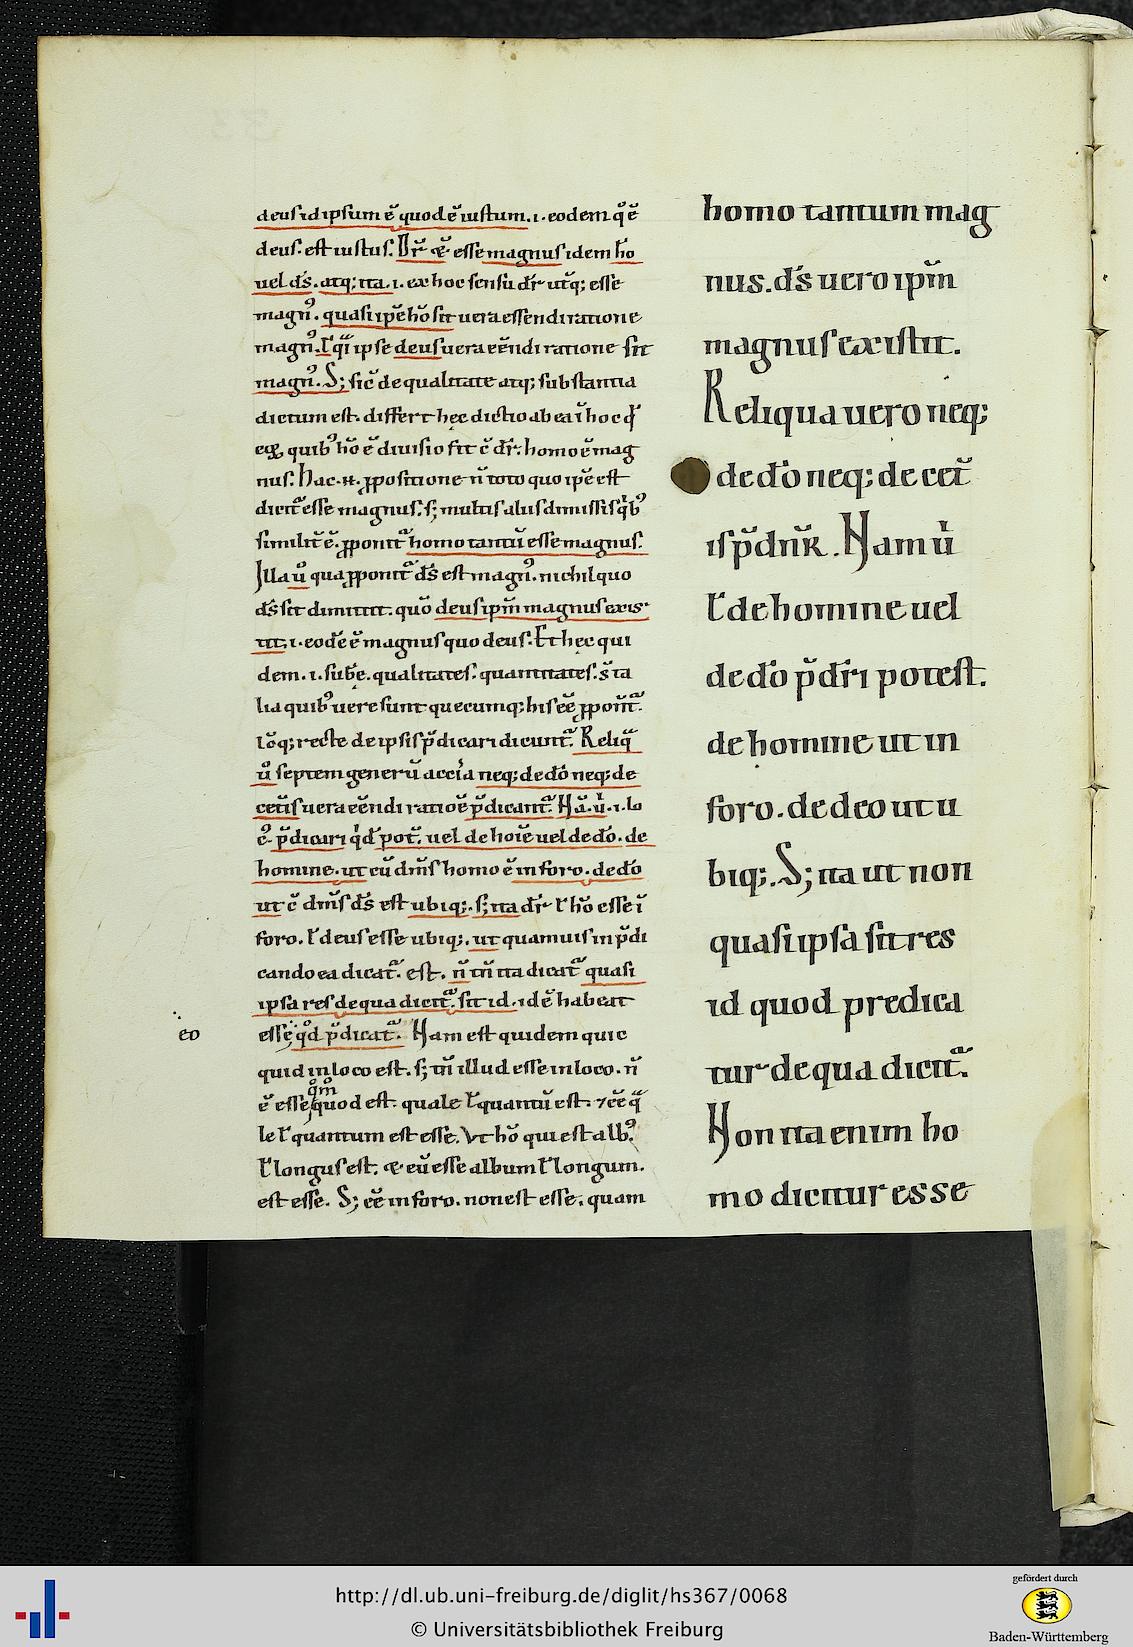 deus idipsum ē quod ē iustum .i. eodem q̊ ē
deus. est iustus. Dr̄ & esse magnus idem ho
uel ds̄. atq; ita .i. ex hoc sensu dr̄ utq; esse
magn⁹. quasi ipse hō sit uera essendi ratione
magn⁹. ł q̄i ipse deus uera eēndi ratione sit
magn⁹. S; sic̄ de qualitate atq; substantia
dictum est. differt hec dictio ab ea ī hoc qd̄
quib⁹ hō ē diuisio fit c̄ dr̄. homo ē mag
nus. Hac .n. ꝓpositione n̄ toto quo ipē est
dicit᷑ esse magnus. s; multis aliis dimissis qib⁹
similit̄ ē. ꝓponit᷑ homo tantū esse magnus.
Illa ů qua ꝓponit᷑ ds̄ est magn⁹. nichil quo
ds̄ sit dimittit. quō deus ipm̄ magnus exis
tit .i. eodē ē magnus quo deus. Et hec qui
dem .i. sub̄e. qualitates. quantitates. s̄ ta
lia quib⁹ uere sunt quecumq; his eē ꝓponūt᷑.
Iōq; recte de ipsis p̄dicari dicunt᷑. Reliq̄
ů septem generū accīa neq; de dō neq; de
cet̄is uera eēndi ratiōe p̄dicant᷑. Nā .ů. .i. lo
c⁹. p̄dicari qd̄ pot̄. uel de hoīe uel de dō. de
homine. ut cū dm̄s homo ē in foro. de dō
ut c̄ dm̄s ds̄ est ubiq;. s; ita dr̄ ł hō esse ī
foro. ł deus esse ubiq;. ut quamuis in p̄di
cando ea dicat᷑. est. n̄ tn̄ ita dicat᷑ quasi
ipsa res de qua dicit᷑. sit id. idē habeat
eo
esse qd̄ p̄dicat᷑. Nam est quidem quic
quid in loco est. s; tn̄ illud esse in loco. n̄
qm̄
ē esse quod est. quale ł quantū est. ⁊ eē q̄
le ł quantum est esse. Vt hō qui est alb⁹.
ł longus est. & eū esse album ł longum.
est esse. S; eē in foro. non est esse. quam
homo tantum mag
nus. ds̄ uero ipm̄
magnus existit.
Reliqua uero neq;
de dō neq; de cet̄
is p̄dn̄r. Nam ů
ł de homine uel
de dō p̄dr̄i potest.
de homine ut in
foro. de deo ut u
biq;. S; ita ut non
quasi ipsa sit res
id quod predica
tur de qua dicit᷑.
Non ita enim ho
mo dicitur esse
http://dl.ub.uni-freiburg.de/diglit/hs367/0068
© Universitätsbibliothek Freiburg
gefördert durch
Baden-Württemberg